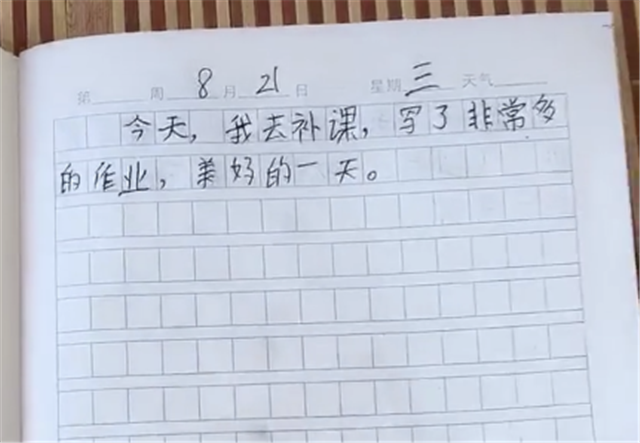 第 周 8 月 21 日 星期 三 天气
今天，我去补课，写了非常多
的作业，美好的一天。